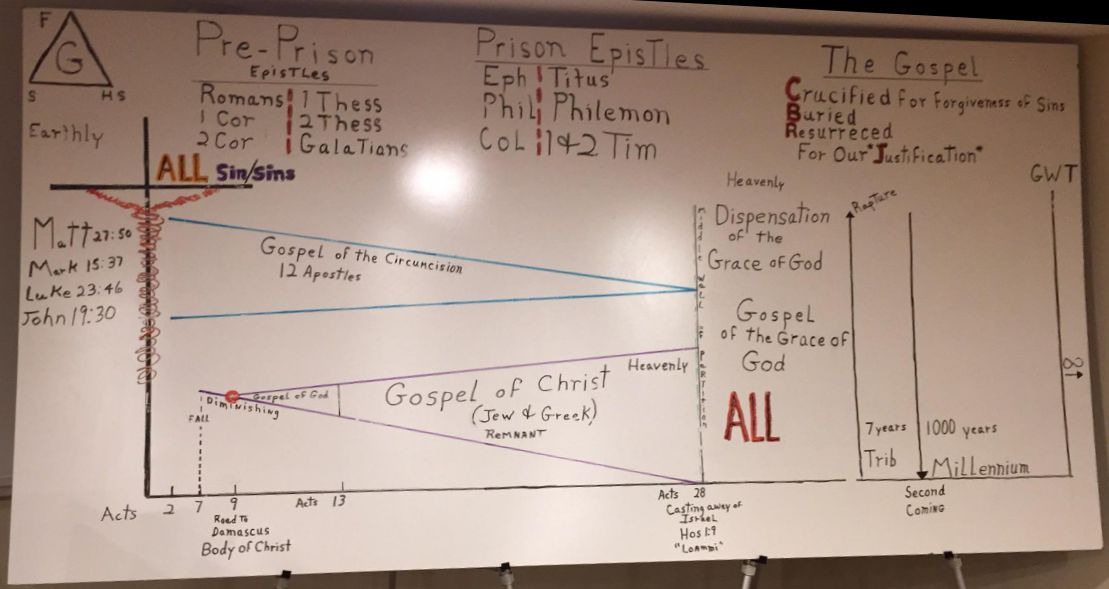 F
G
S HS
Pre-Prison
Epistles
Romans 1 Thess
1 Cor 2 Thess
2 Cor Galatians
Prison Epistles
Eph Titus
Phil Philemon
Col 1&2 Tim
The Gospel
Crucified for forgiveness of Sins
Buried
Resurreced
For Our "Justification"
Earthly
ALL Sin/Sins
Matt 27:50
Mark 15:37
Luke 23:46
John 19:30
Gospel of the Circuncision
12 Apostles
Heavenly
Dispensation
of the
Grace of God
Middle Wall of Partition
Gospel
of the Grace of
God
ALL
Rapture
GWT
∞
7 years
Trib
1000 years
Millennium
Second
Coming
Diminishing
FALL
Gospel of God
Gospel of Christ
(Jew & Greek)
Remnant
Heavenly
Acts 2 7 9 Acts 13 Acts 28
Road To
Damascus
Body of Christ
Casting away of
Israel
Hos 1:9
"Loammi"